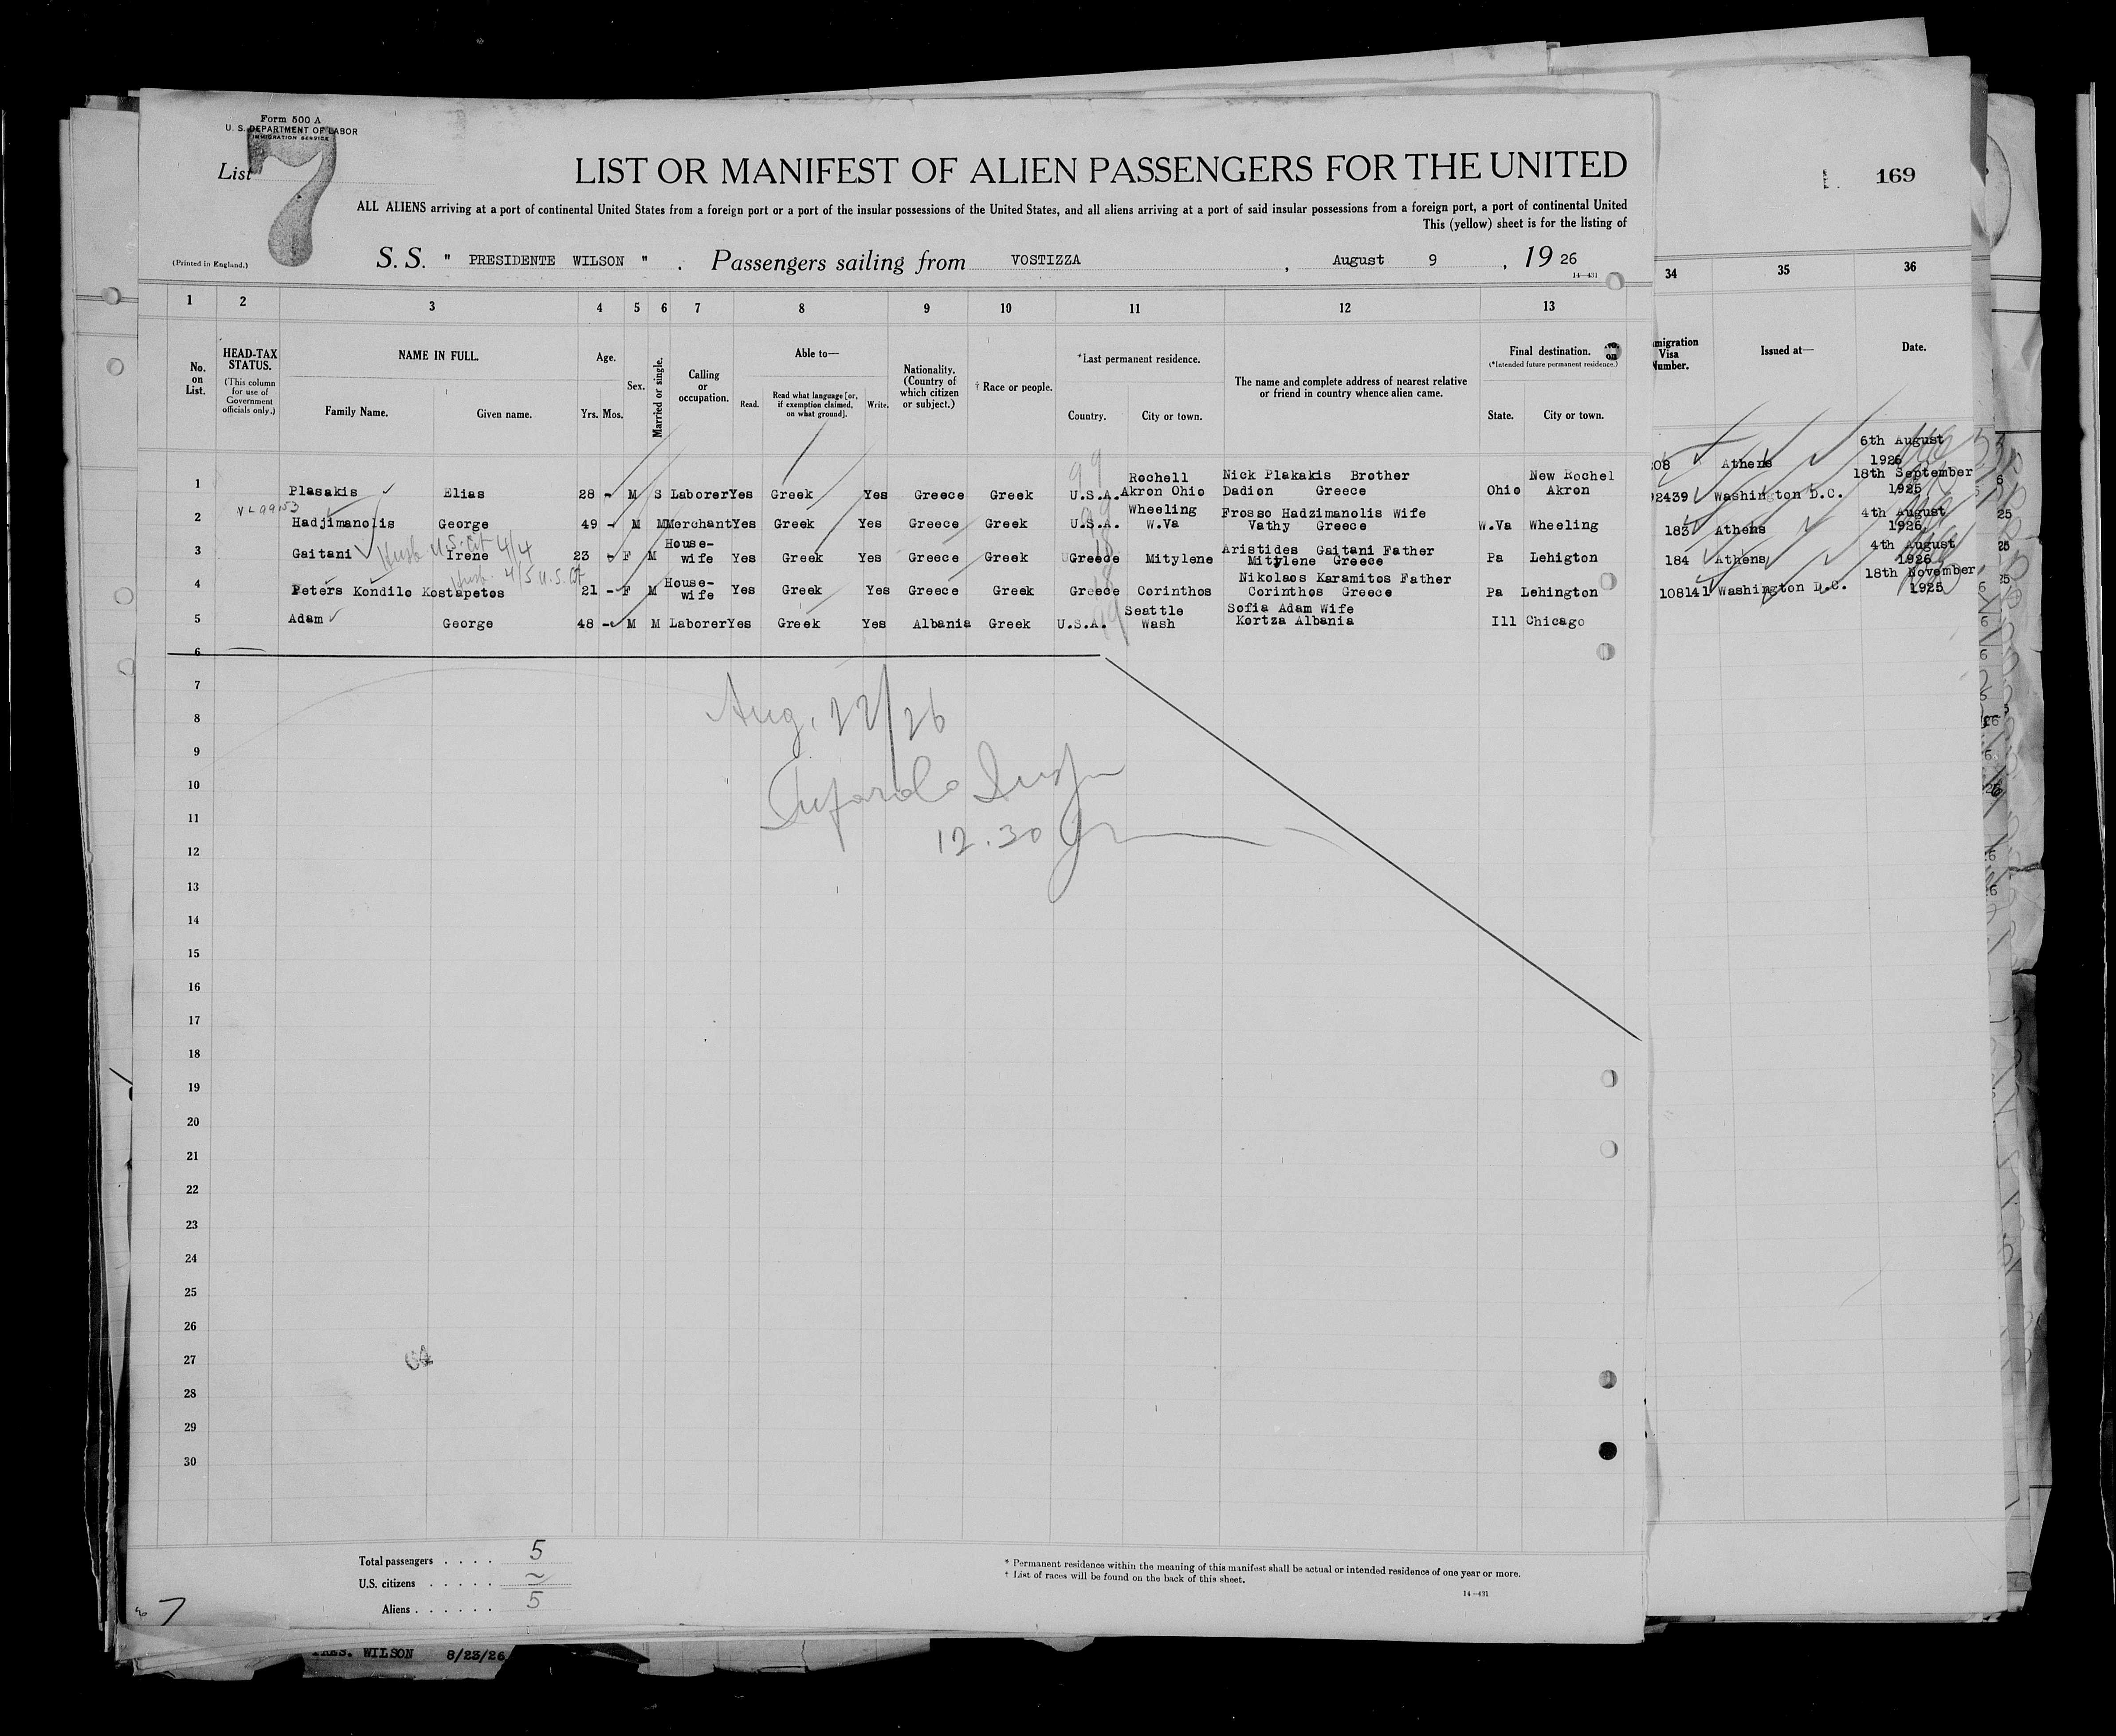 Form 500 A
U. S. DEPARTMENT OF LABOR
IMMIGRATION SERVICE
List 7
LIST OR MANIFEST OF ALIEN PASSENGERS FOR THE UNITED
169
ALL ALIENS arriving at a port of continental United States from a foreign port or a port of the insular possessions of the United States, and all aliens arriving at a port of said insular possessions from a foreign port, a port of continental United
This (yellow) sheet is for the listing of
(Printed in England.)
S. S. " PRESIDENTE WILSON " . Passengers sailing from VOSTIZZA , August 9 , 19 26
14—431
1 2 3 4 5 6 7 8 9 10 11 12 13 34 35 36
No. on List.
HEAD-TAX STATUS.
(This column for use of Government officials only.)
NAME IN FULL.
Family Name. Given name.
Age.
Yrs. Mos.
Sex.
Married or single.
Calling or occupation.
Able to—
Read. Read what language [or, if exemption claimed, on what ground]. Write.
Nationality. (Country of which citizen or subject.)
† Race or people.
*Last permanent residence.
Country. City or town.
The name and complete address of nearest relative or friend in country whence alien came.
Final destination.
(*Intended future permanent residence.)
State. City or town.
migration Visa Number.
Issued at—
Date.
1 Plasakis Elias 28 - M S Laborer Yes Greek Yes Greece Greek U.S.A. Rochell Akron Ohio Nick Plakakis Brother Dadion Greece Ohio New Rochel Akron
08 Athens 6th August 1926
99
2 Hadjimanolis George 49 - M M Merchant Yes Greek Yes Greece Greek U.S.A. Wheeling W.Va Frosso Hadzimanolis Wife Vathy Greece W.Va Wheeling
92439 Washington D.C. 18th September 1925
3 Gaitani Irene 23 - F M House-wife Yes Greek Yes Greece Greek Greece Mitylene Aristides Gaitani Father Mitylene Greece Pa Lehigton
183 Athens 4th August 1926
Husb U.S. Cit 4/4
4 Peters Kondilo Kostapetos 21 - F M House-wife Yes Greek Yes Greece Greek Greece Corinthos Nikolaos Karamitos Father Corinthos Greece Pa Lehington
184 Athens 4th August 1926
Husb. 4/5 U.S. Cit
5 Adam George 48 - M M Laborer Yes Greek Yes Albania Greek U.S.A. Seattle Wash Sofia Adam Wife Kortza Albania Ill Chicago
108141 Washington D.C. 18th November 1925
6
7
8
Aug. 22/26
9
10
11
12.30
12
13
14
15
16
17
18
19
20
21
22
23
24
25
26
27
28
29
30
Total passengers . . . . 5
U.S. citizens . . . . .
Aliens . . . . . . 5
* Permanent residence within the meaning of this manifest shall be actual or intended residence of one year or more.
† List of races will be found on the back of this sheet.
14—431
7
PRES. WILSON 8/23/26